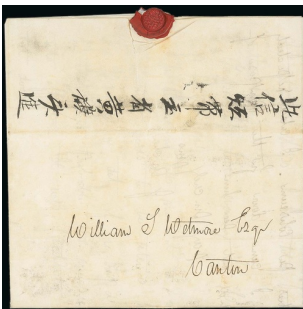 此信 帶至省黄
William S Wetmore Esqr
Canton